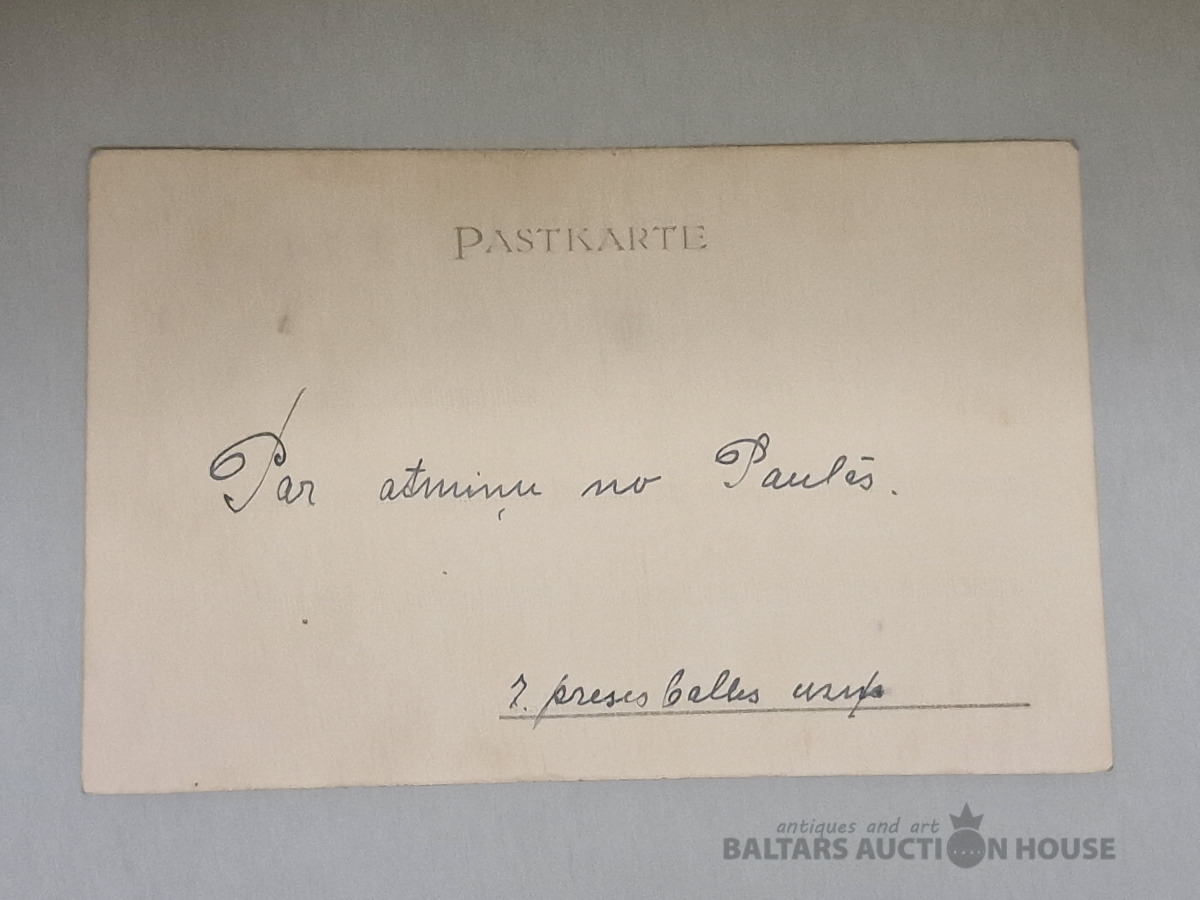 PASTKARTE
Par atmiņu no Paulēs.
7. preses balles
antiques and art
BALTARS AUCTION HOUSE